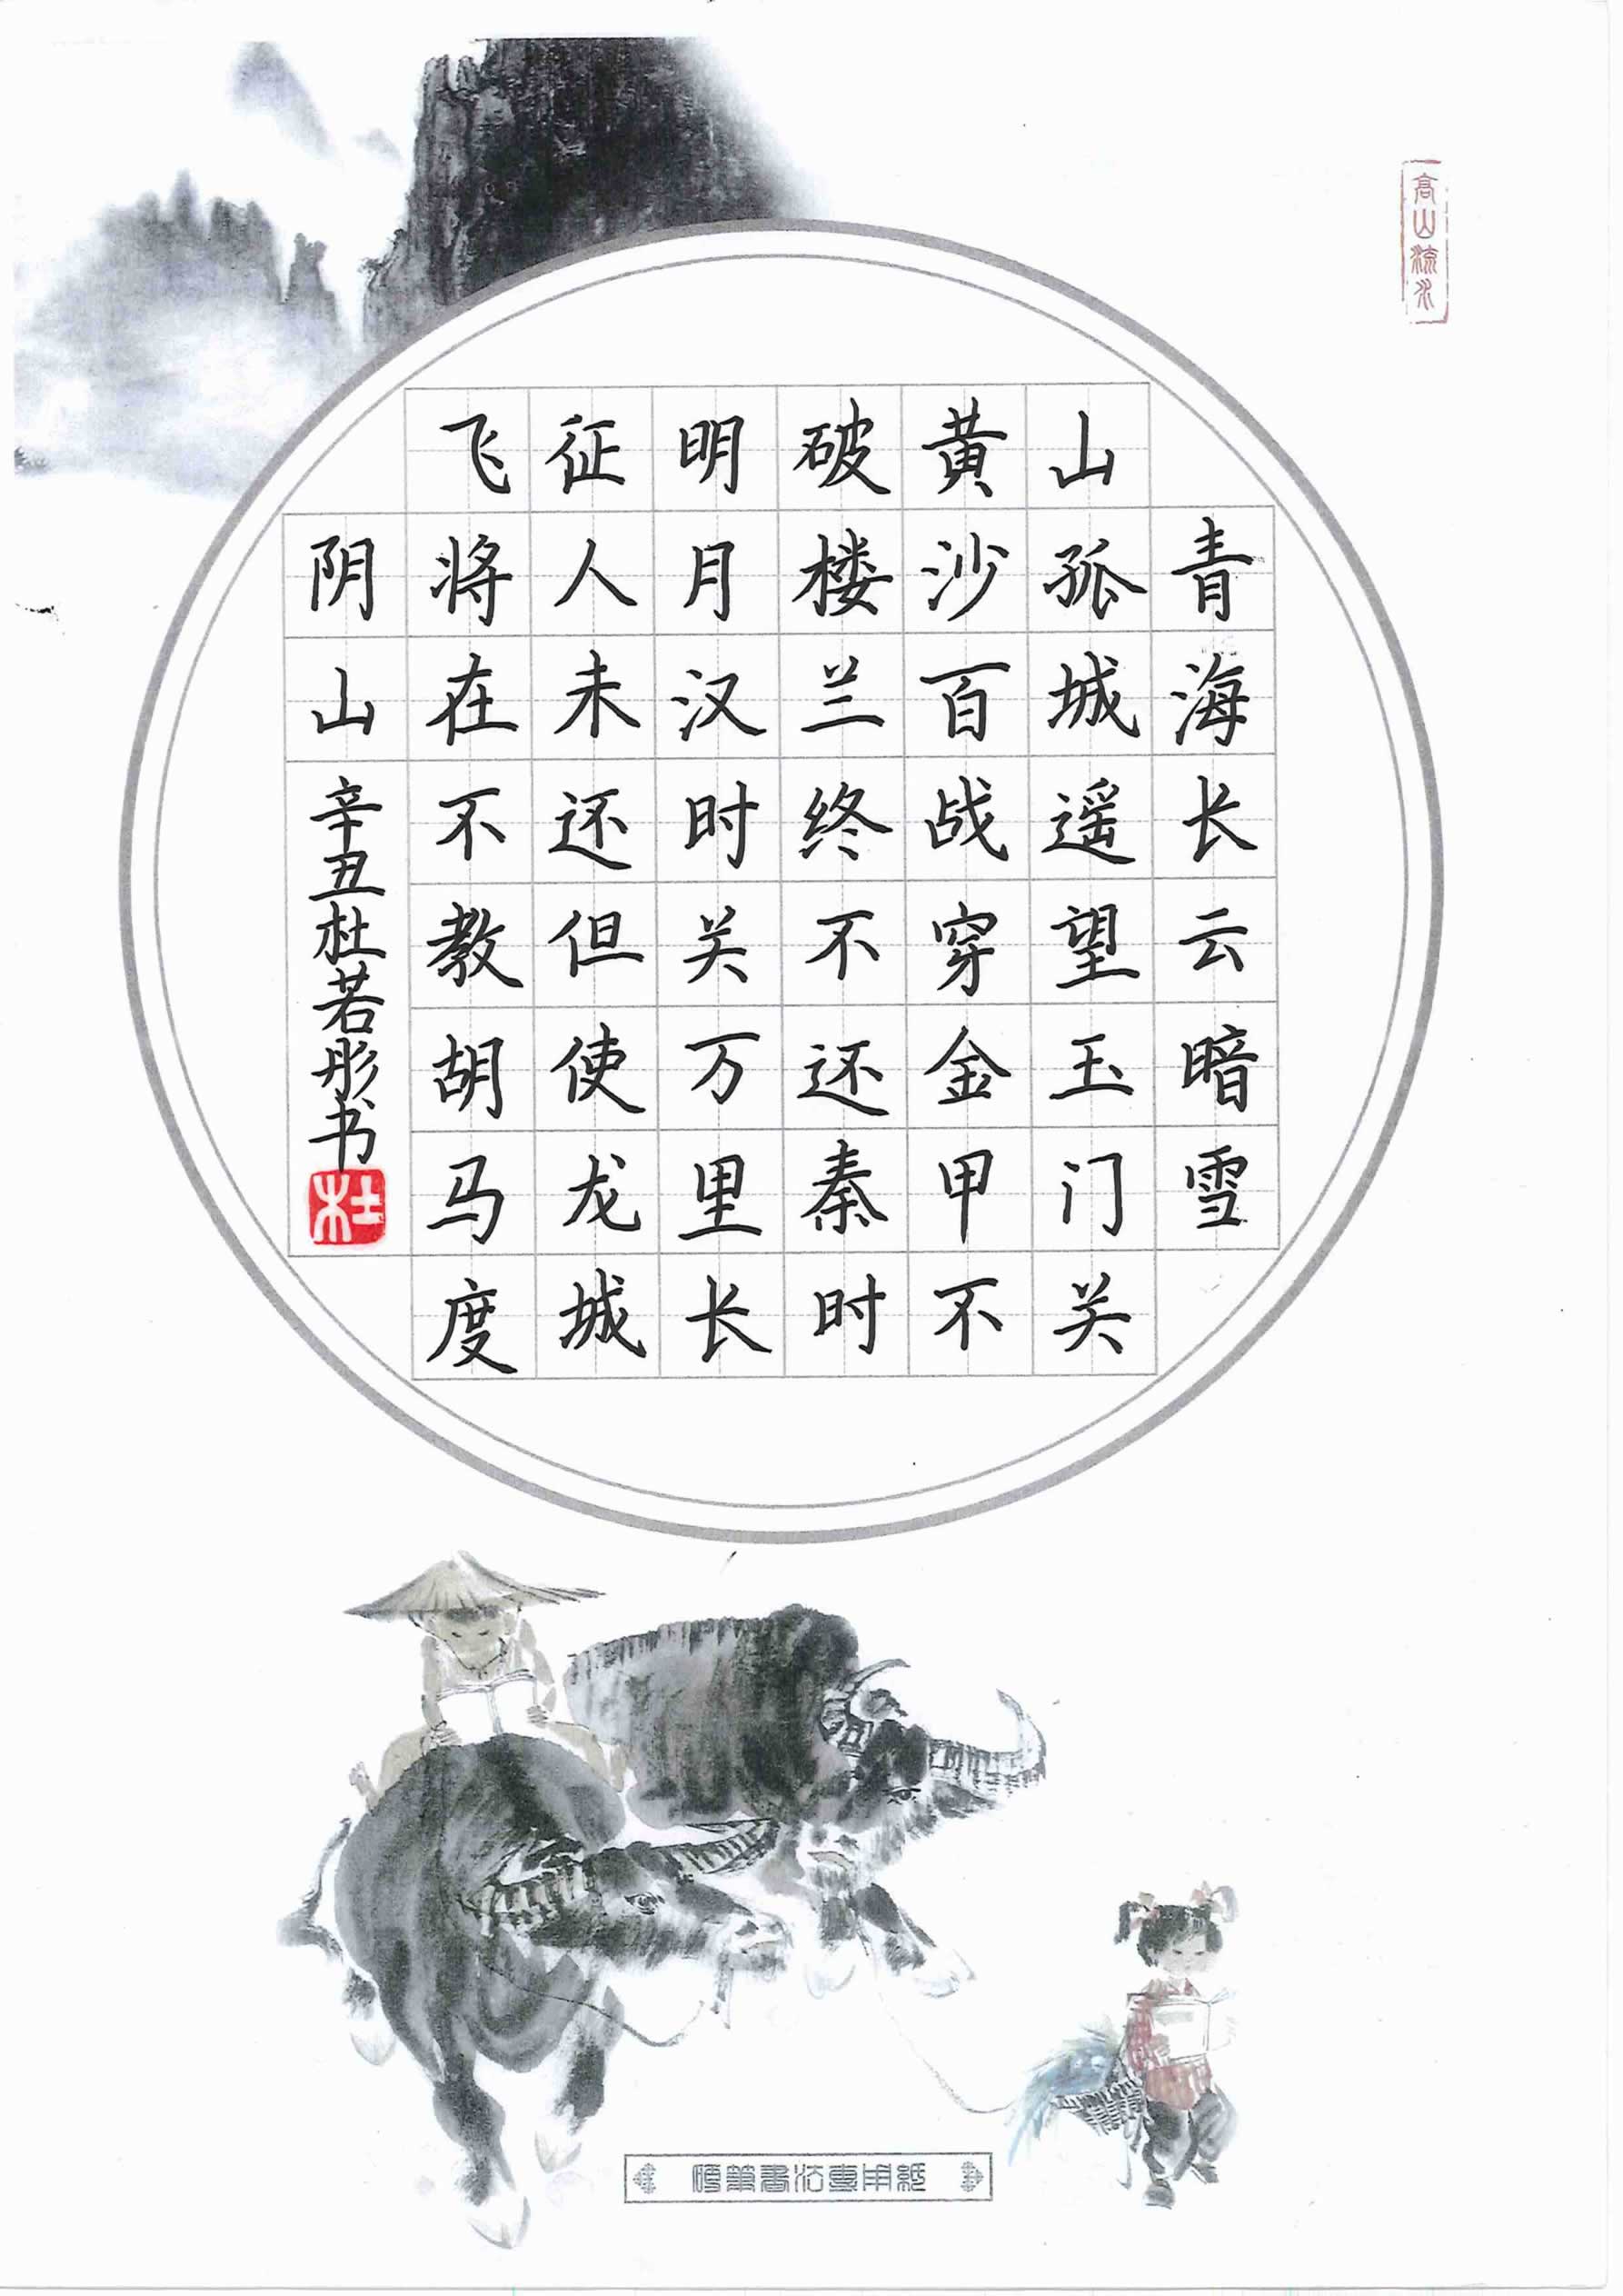 高山流水
青海长云暗雪
山孤城遥望玉门关
黄沙百战穿金甲不
破楼兰终不还秦时
明月汉时关万里长
征人未还但使龙城
飞将在不教胡马度
阴山辛丑杜若彤书
杜
硬笔书法专用纸